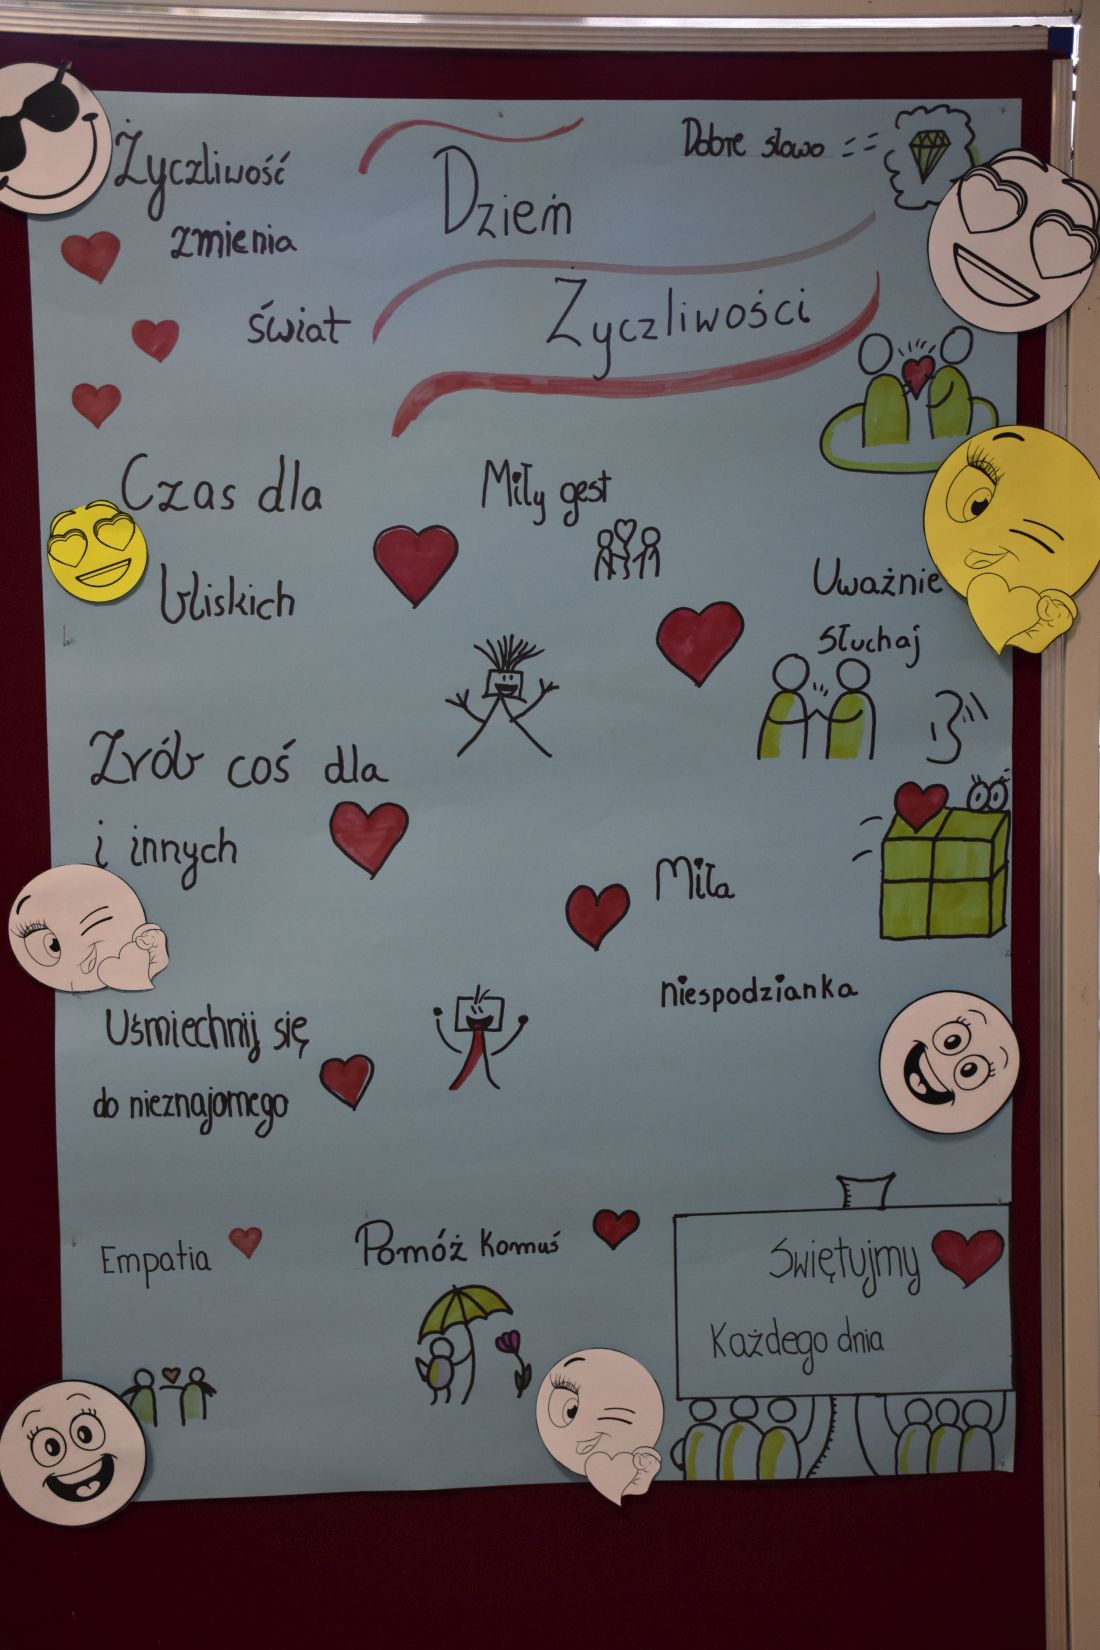 Dzień
Życzliwości
Życzliwość
zmienia
świat
Dobre słowo
Czas dla
bliskich
Miły gest
Uważnie
słuchaj
Zrób coś dla
i innych
Miła
niespodzianka
Uśmiechnij się
do nieznajomego
Empatia
Pomóż Komuś
Świętujmy
Każdego dnia